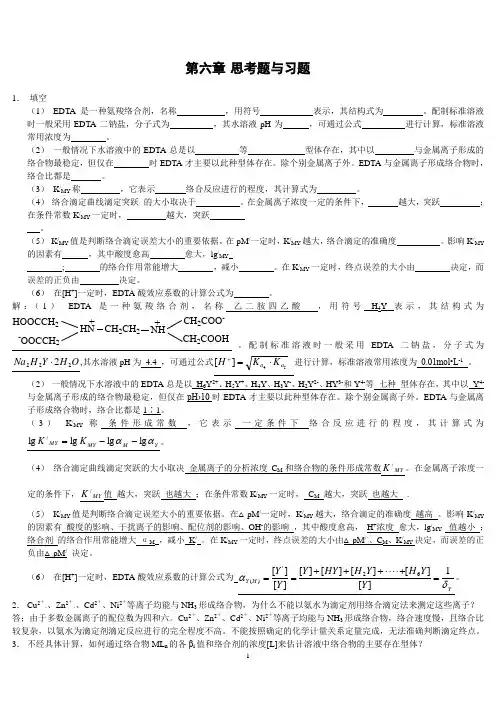 第六章 思考题与习题
1. 填空
（1） EDTA 是一种氨羧络合剂，名称 ，用符号 表示，其结构式为 。配制标准溶液
时一般采用 EDTA 二钠盐，分子式为 ，其水溶液 pH 为 ，可通过公式 进行计算，标准溶液
常用浓度为 。
（2） 一般情况下水溶液中的 EDTA 总是以 等 型体存在，其中以 与金属离子形成的
络合物最稳定，但仅在 时 EDTA 才主要以此种型体存在。除个别金属离子外。EDTA 与金属离子形成络合物时，
络合比都是 。
（3） K'MY称 。它表示 络合反应进行的程度，其计算式为 。
（4） 络合滴定曲线滴定突跃 的大小取决于 。在金属离子浓度一定的条件下， 越大，突跃 ；
在条件数 K'MY一定时， 越大，突跃
。
（5） K'MY值是判断络合滴定误差大小的重要依据。在 pM'一定时，K'MY越大，络合滴定的准确度 。影响 K'MY
的因素有 ，其中酸度愈高 愈大，lg'MY
； 的络合作用常能增大 ，减小 。在 K'MY一定时，终点误差的大小由 决定，而
误差的正负由 决定。
（6） 在[H+]一定时，EDTA 酸效应系数的计算公式为 。
解:（1） EDTA 是一种氨羧络合剂，名称 乙二胺四乙酸 ，用符号 H4Y 表示，其结构式为
HOOCCH2 CH2COO-
HN+ – CH2CH2 – NH+
-OOCCH2 CH2COOH 。配制标准溶液时一般采用 EDTA 二钠盐，分子式为
Na2H2Y·2H2O,其水溶液 pH 为 4.4 ，可通过公式[H+]=√(Ka4·Ka5) 进行计算，标准溶液常用浓度为 0.01mol•L-1 。
（2） 一般情况下水溶液中的 EDTA 总是以 H6Y2+、H5Y+、H4Y、H3Y-、H2Y2-、HY3-和 Y4-等 七种 型体存在，其中以 Y4-
与金属离子形成的络合物最稳定，但仅在 pH›10 时 EDTA 才主要以此种型体存在。除个别金属离子外。EDTA 与金属离
子形成络合物时，络合比都是 1∶1。
（3） K'MY称 条件形成常数 ，它表示 一定条件下 络合反应进行的程度，其计算式为
lg K'MY = lg KMY − lg αM − lg αY 。
（4） 络合滴定曲线滴定突跃的大小取决 金属离子的分析浓度 CM和络合物的条件形成常数K'MY。在金属离子浓度一
定的条件下，K'MY值 越大，突跃 也越大 ；在条件数 K'MY一定时， CM 越大，突跃 也越大 .
（5） K'MY值是判断络合滴定误差大小的重要依据。在△pM'一定时，K'MY越大，络合滴定的准确度 越高 。影响 K'MY
的因素有 酸度的影响、干扰离子的影响、配位剂的影响、OH-的影响 ，其中酸度愈高， H+浓度 愈大，lg'MY 值越小 ；
络合剂 的络合作用常能增大 αM ，减小 K' 。在 K'MY一定时，终点误差的大小由△pM'、CM、K'MY决定，而误差的正
负由△pM' 决定。
（6） 在[H+]一定时，EDTA 酸效应系数的计算公式为 αY(H) = [Y']/[Y] = ([Y]+[HY]+[H2Y]+⋯⋯+[H6Y])/[Y] = 1/δY 。
2. Cu2+、Zn2+、Cd2+、Ni2+等离子均能与 NH3形成络合物，为什么不能以氨水为滴定剂用络合滴定法来测定这些离子？
答；由于多数金属离子的配位数为四和六。Cu2+、Zn2+、Cd2+、Ni2+等离子均能与 NH3形成络合物，络合速度慢，且络合比
较复杂，以氨水为滴定剂滴定反应进行的完全程度不高。不能按照确定的化学计量关系定量完成，无法准确判断滴定终点。
3. 不经具体计算，如何通过络合物 MLn的各βi值和络合剂的浓度[L]来估计溶液中络合物的主要存在型体？
1